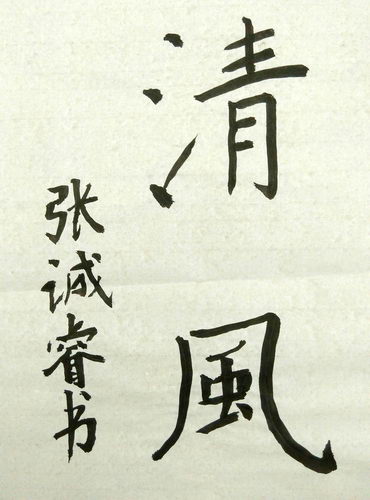 清風
张诚睿书